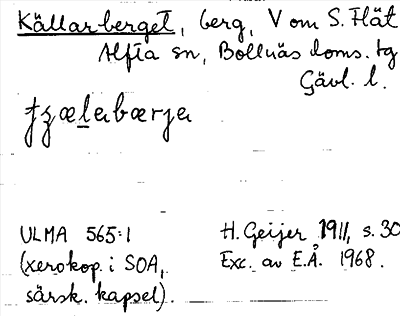 Källarberget, berg, V om S. Flät
Alfta sn, Bollnäs doms. tg
Gävl. l.
ULMA 565:1
(xerokop. i SOA,
särsk. kapsel).
H. Geijer 1911, s. 30
Exc. av E.Å. 1968.